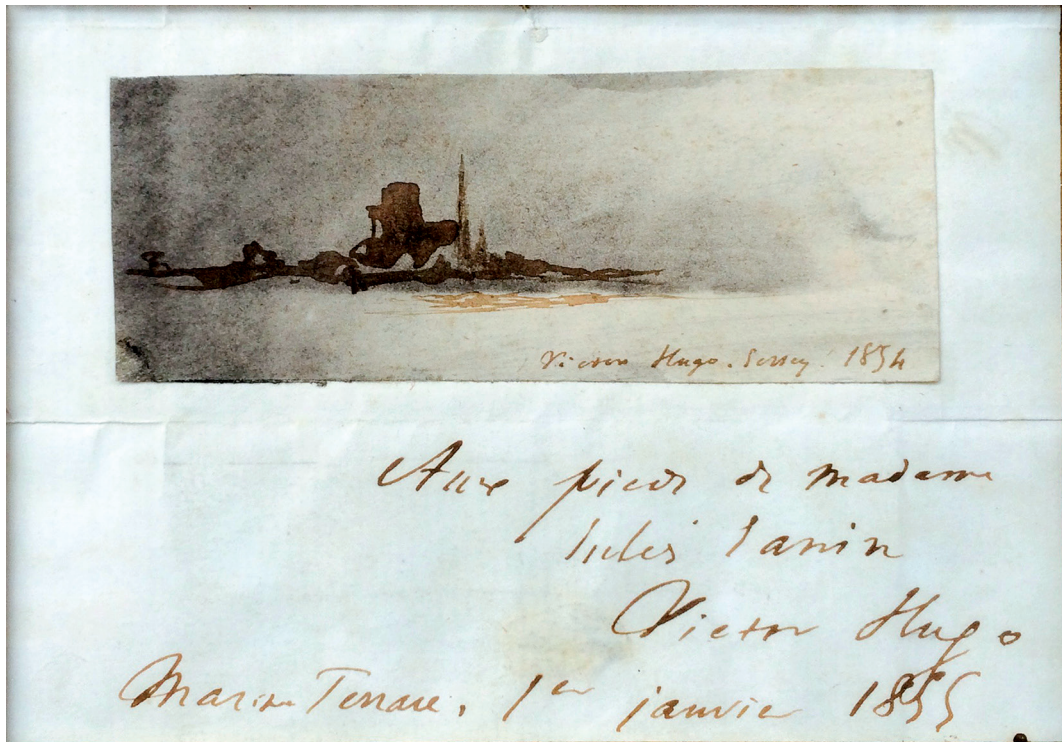 Victor Hugo. Jersey. 1854
Aux pieds de madame
Jules Janin
Victor Hugo
Marine Terrace. 1er janvier 1855